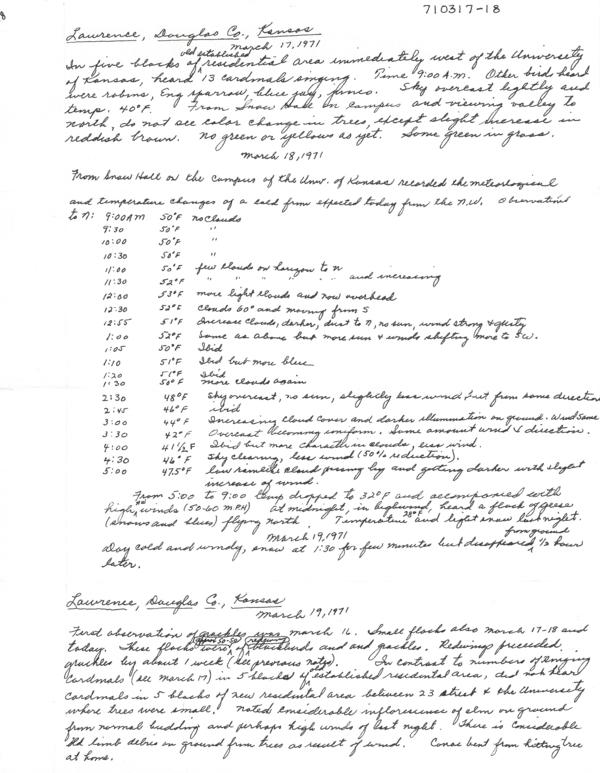 710317-18
Lawrence, Douglas Co., Kansas
March 17, 1971
In five blocks of old established residential area immediately west of the University
of Kansas, heard 13 cardinals singing. Time 9:00 A.M. Other birds heard
were robins, Eng sparrow, blue jay, junco. Sky overcast lightly and
temp. 40°F. From Snow Hall on campus and viewing valley to
north, do not see color change in trees, except slight increase in
reddish brown. No green or yellows as yet. Some green in grass.
March 18, 1971
From Snow Hall on the campus of the Univ. of Kansas recorded the meteorological
and temperature changes of a cold front expected today from the N.W. Observations
to N: 9:00 AM 50°F no clouds
9:30 50°F "
10:00 50°F "
10:30 50°F "
11:00 50°F few clouds on horizon to N
11:30 52°F " " " " " and increasing
12:00 53°F more light clouds and now overhead
12:30 52°F Clouds 60° and moving from S
12:55 51°F Increase clouds, darker, dust to N, no sun, wind strong & gusty
1:00 52°F Same as above but more sun & winds shifting more to SW.
1:05 50°F Ibid
1:10 51°F Ibid but more blue
1:20 51°F Ibid
1:30 50°F more clouds again
2:30 48°F Sky overcast, no sun, slightly less wind but from same direction
2:45 46°F ibid
3:00 44°F Increasing cloud cover and darker illumination on ground. Wind same
3:30 42°F Overcast becoming uniform. Same amount wind & direction.
4:00 41 1/2°F Ibid but more character in clouds, less wind.
4:30 46°F Sky clearing, less wind (50% reduction).
5:00 47.5°F low cloud passing by and getting darker with slight
increase of wind.
From 5:00 to 9:00 temp dropped to 32°F and accompanied with
high winds (50-60 MPH) At midnight, in high wind, heard a flock of geese
(snows and blues) flying north. Temperature 28°F and light snow last night.
March 19, 1971
Day cold and windy, snow at 1:30 for few minutes but disappeared from ground 1/2 hour
later.
Lawrence, Douglas Co., Kansas
March 19, 1971
First observation of grackles was March 16. Small flocks also March 17-18 and
today. These flocks were approx 30-50 of redwing blackbirds and and grackles. Redwings preceeded
grackles by about 1 week (see previous notes). In contrast to numbers of singing
cardinals (see March 17) in 5 blocks of old established residental area, did not hear
cardinals in 5 blocks of new residental area between 23 street & the University
where trees were small. Noted considerable infloresence of elm on ground
from normal budding and perhaps high winds of last night. There is considerable
old limb debres on ground from trees as result of wind. Canoe bent from hitting tree
at home.